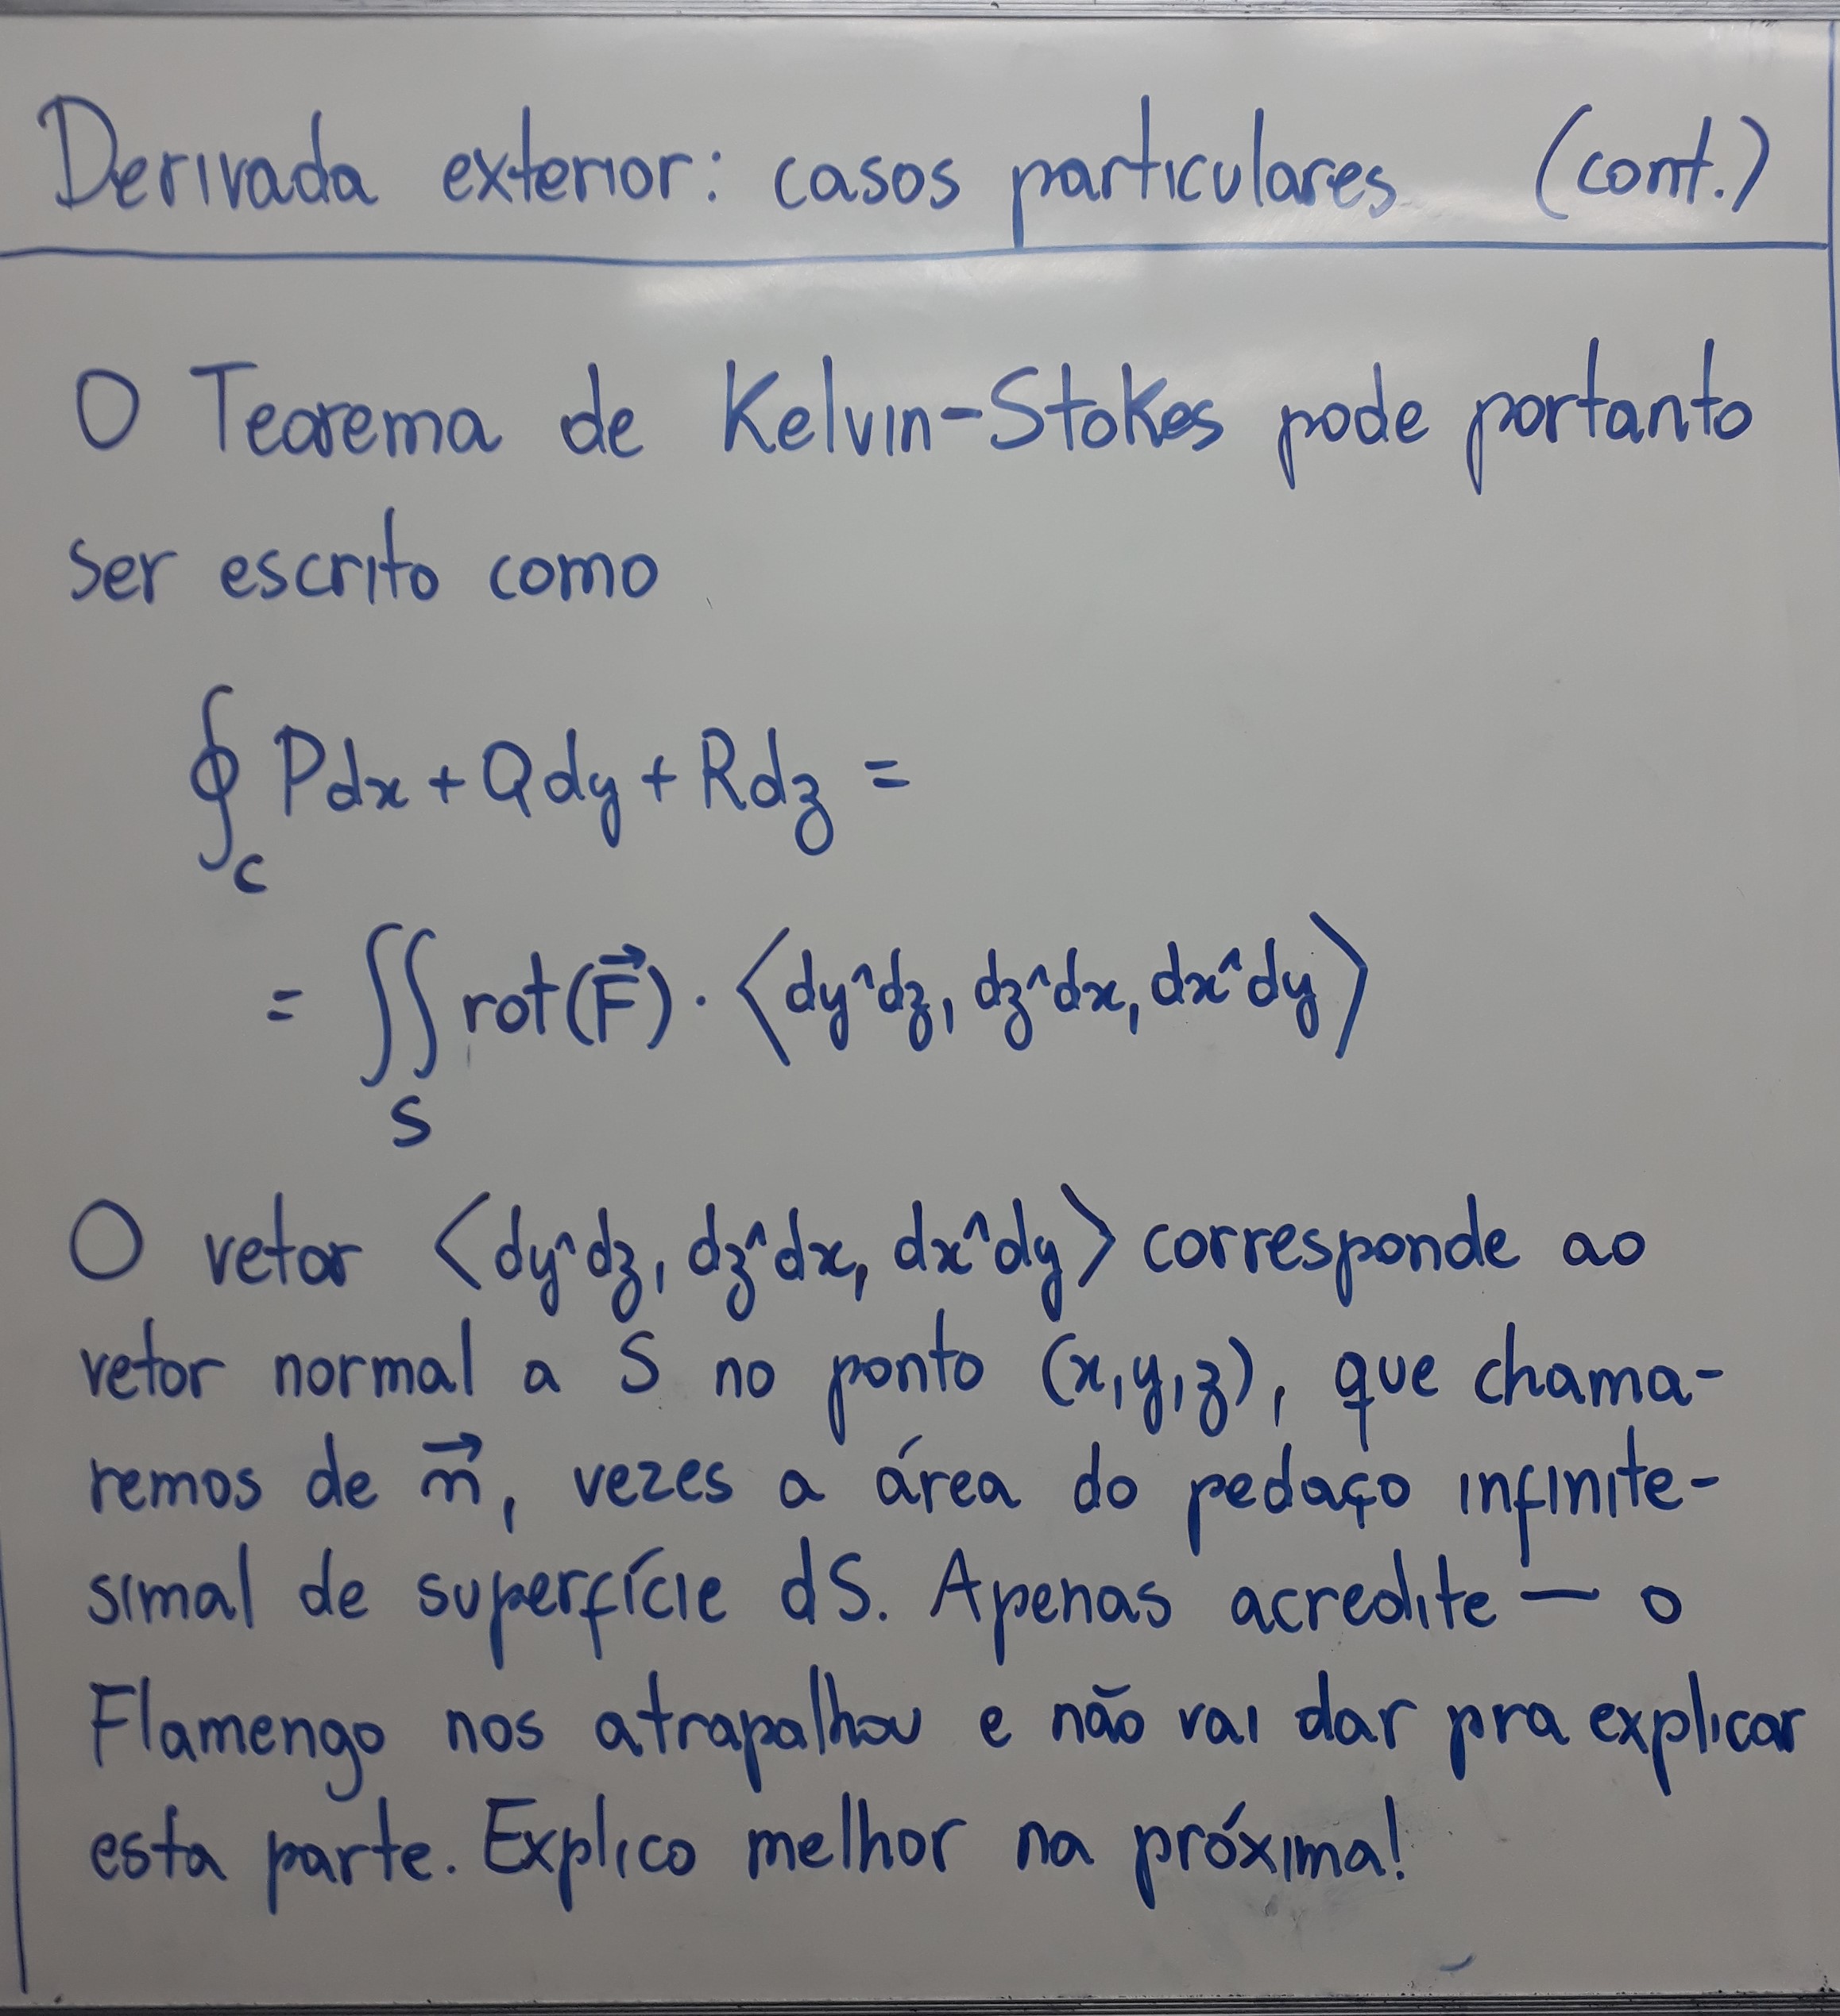 Derivada exterior: casos particulares (cont.)
O Teorema de Kelvin-Stokes pode portanto
ser escrito como
∮_C Pdx + Qdy + Rdz =
= ∬_S rot(F⃗) · ⟨dy^dz, dz^dx, dx^dy⟩
O vetor ⟨dy^dz, dz^dx, dx^dy⟩ corresponde ao
vetor normal a S no ponto (x,y,z), que chama-
remos de n⃗, vezes a área do pedaço infinite-
simal de superfície dS. Apenas acredite — o
Flamengo nos atrapalhou e não vai dar pra explicar
esta parte. Explico melhor na próxima!